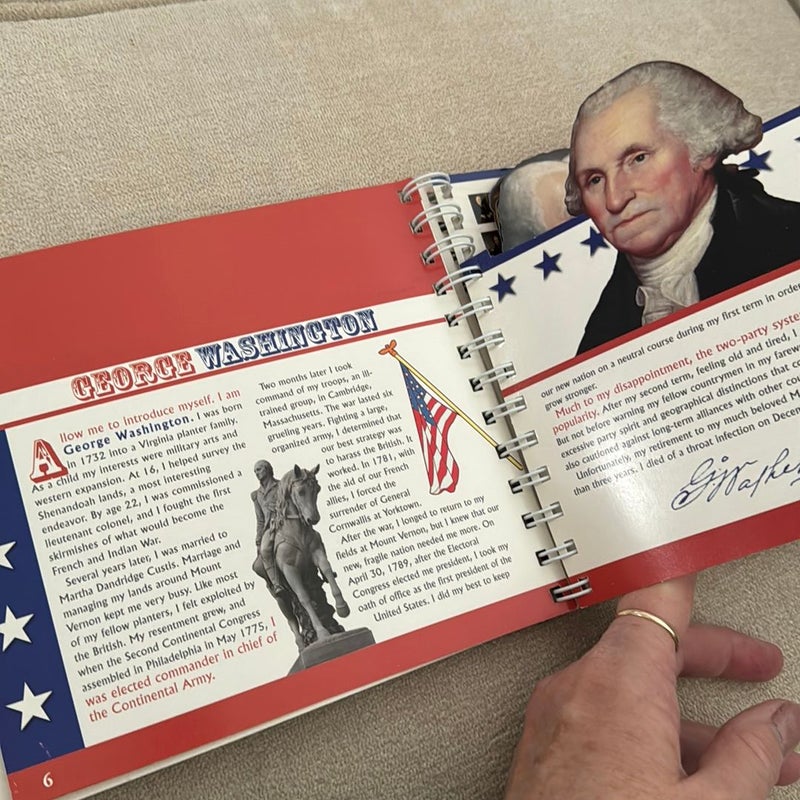 GEORGE WASHINGTON
Allow me to introduce myself. I am
George Washington. I was born
in 1732 into a Virginia planter family.
As a child my interests were military arts and
western expansion. At 16, I helped survey the
Shenandoah lands, a most interesting
endeavor. By age 22, I was commissioned a
lieutenant colonel, and I fought the first
skirmishes of what would become the
French and Indian War.
Several years later, I was married to
Martha Dandridge Custis. Marriage and
managing my lands around Mount
Vernon kept me very busy. Like most
of my fellow planters, I felt exploited by
the British. My resentment grew, and
when the Second Continental Congress
assembled in Philadelphia in May 1775, I
was elected commander in chief of
the Continental Army.
Two months later I took
command of my troops, an ill-
trained group, in Cambridge,
Massachusetts. The war lasted six
grueling years. Fighting a large,
organized army, I determined that
our best strategy was
to harass the British. It
worked. In 1781, with
the aid of our French
allies, I forced the
surrender of General
Cornwallis at Yorktown.
After the war, I longed to return to my
fields at Mount Vernon, but I knew that our
new, fragile nation needed me more. On
April 30, 1789, after the Electoral
Congress elected me president, I took my
oath of office as the first president of the
United States. I did my best to keep
6
our new nation on a neutral course during my first term in order
grow stronger.
Much to my disappointment, the two-party syste
popularity. After my second term, feeling old and tired, I
But not before warning my fellow countrymen in my farew
excessive party spirit and geographical distinctions that co
also cautioned against long-term alliances with other cou
Unfortunately, my retirement to my much beloved M
than three years. I died of a throat infection on Decem
G Washing